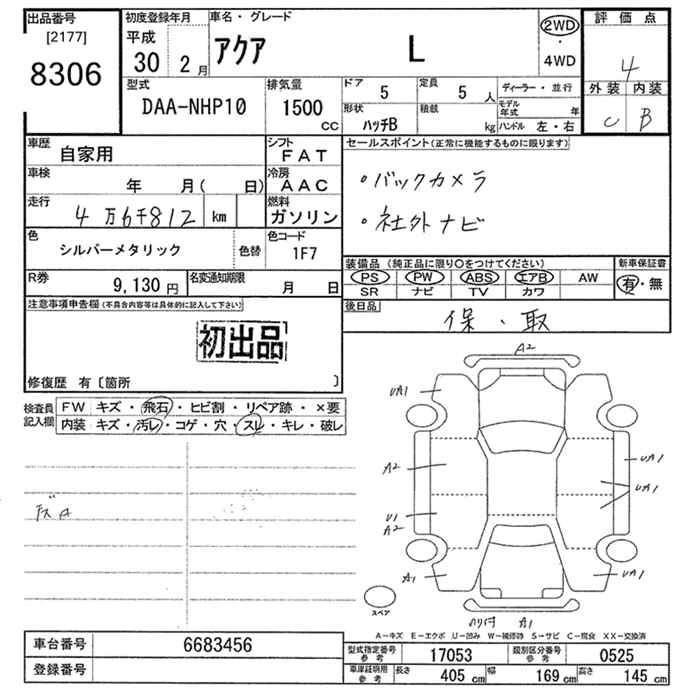 出品番号 [2177] 8306
初度登録年月 平成 30 2月
車名・グレード アクア L
2WD ・ 4WD
評価点 4
外装 C 内装 B
型式 DAA-NHP10
排気量 1500 cc
ドア 5 定員 5人
ディーラー・並行
形状 ハッチB 積載 kg
モデル年式 年
ハンドル 左・右
車歴 自家用
シフト FAT
車検 年 月( 日)
冷房 AAC
走行 4万6千812 km
燃料 ガソリン
色 シルバーメタリック 色替
色コード 1F7
R券 9,130円
名変通知期限 月 日
セールスポイント(正常に機能するものに限ります)
・バックカメラ
・社外ナビ
装備品(純正品に限り○をつけてください)
新車保証書
PS PW ABS エアB AW
SR ナビ TV カワ
有・無
後日品 保・取
注意事項申告欄(不具合内容等は具体的に記入して下さい)
初出品
修復歴 有〔箇所 〕
検査員記入欄
FW キズ・飛石・ヒビ割・リペア跡・×要
内装 キズ・汚レ・コゲ・穴・スレ・キレ・破レ
A2
UA1
A2
UA1
UA1
U1
A2
A1
UA1
スペア
A1
A−キズ E−エクボ U−凹み W−補修跡 S−サビ C−腐食 XX−交換済
車台番号 6683456
登録番号
型式指定番号 参考 17053
類別区分番号 参考 0525
車庫証明用 参考 長さ 405cm 幅 169cm 高さ 145cm